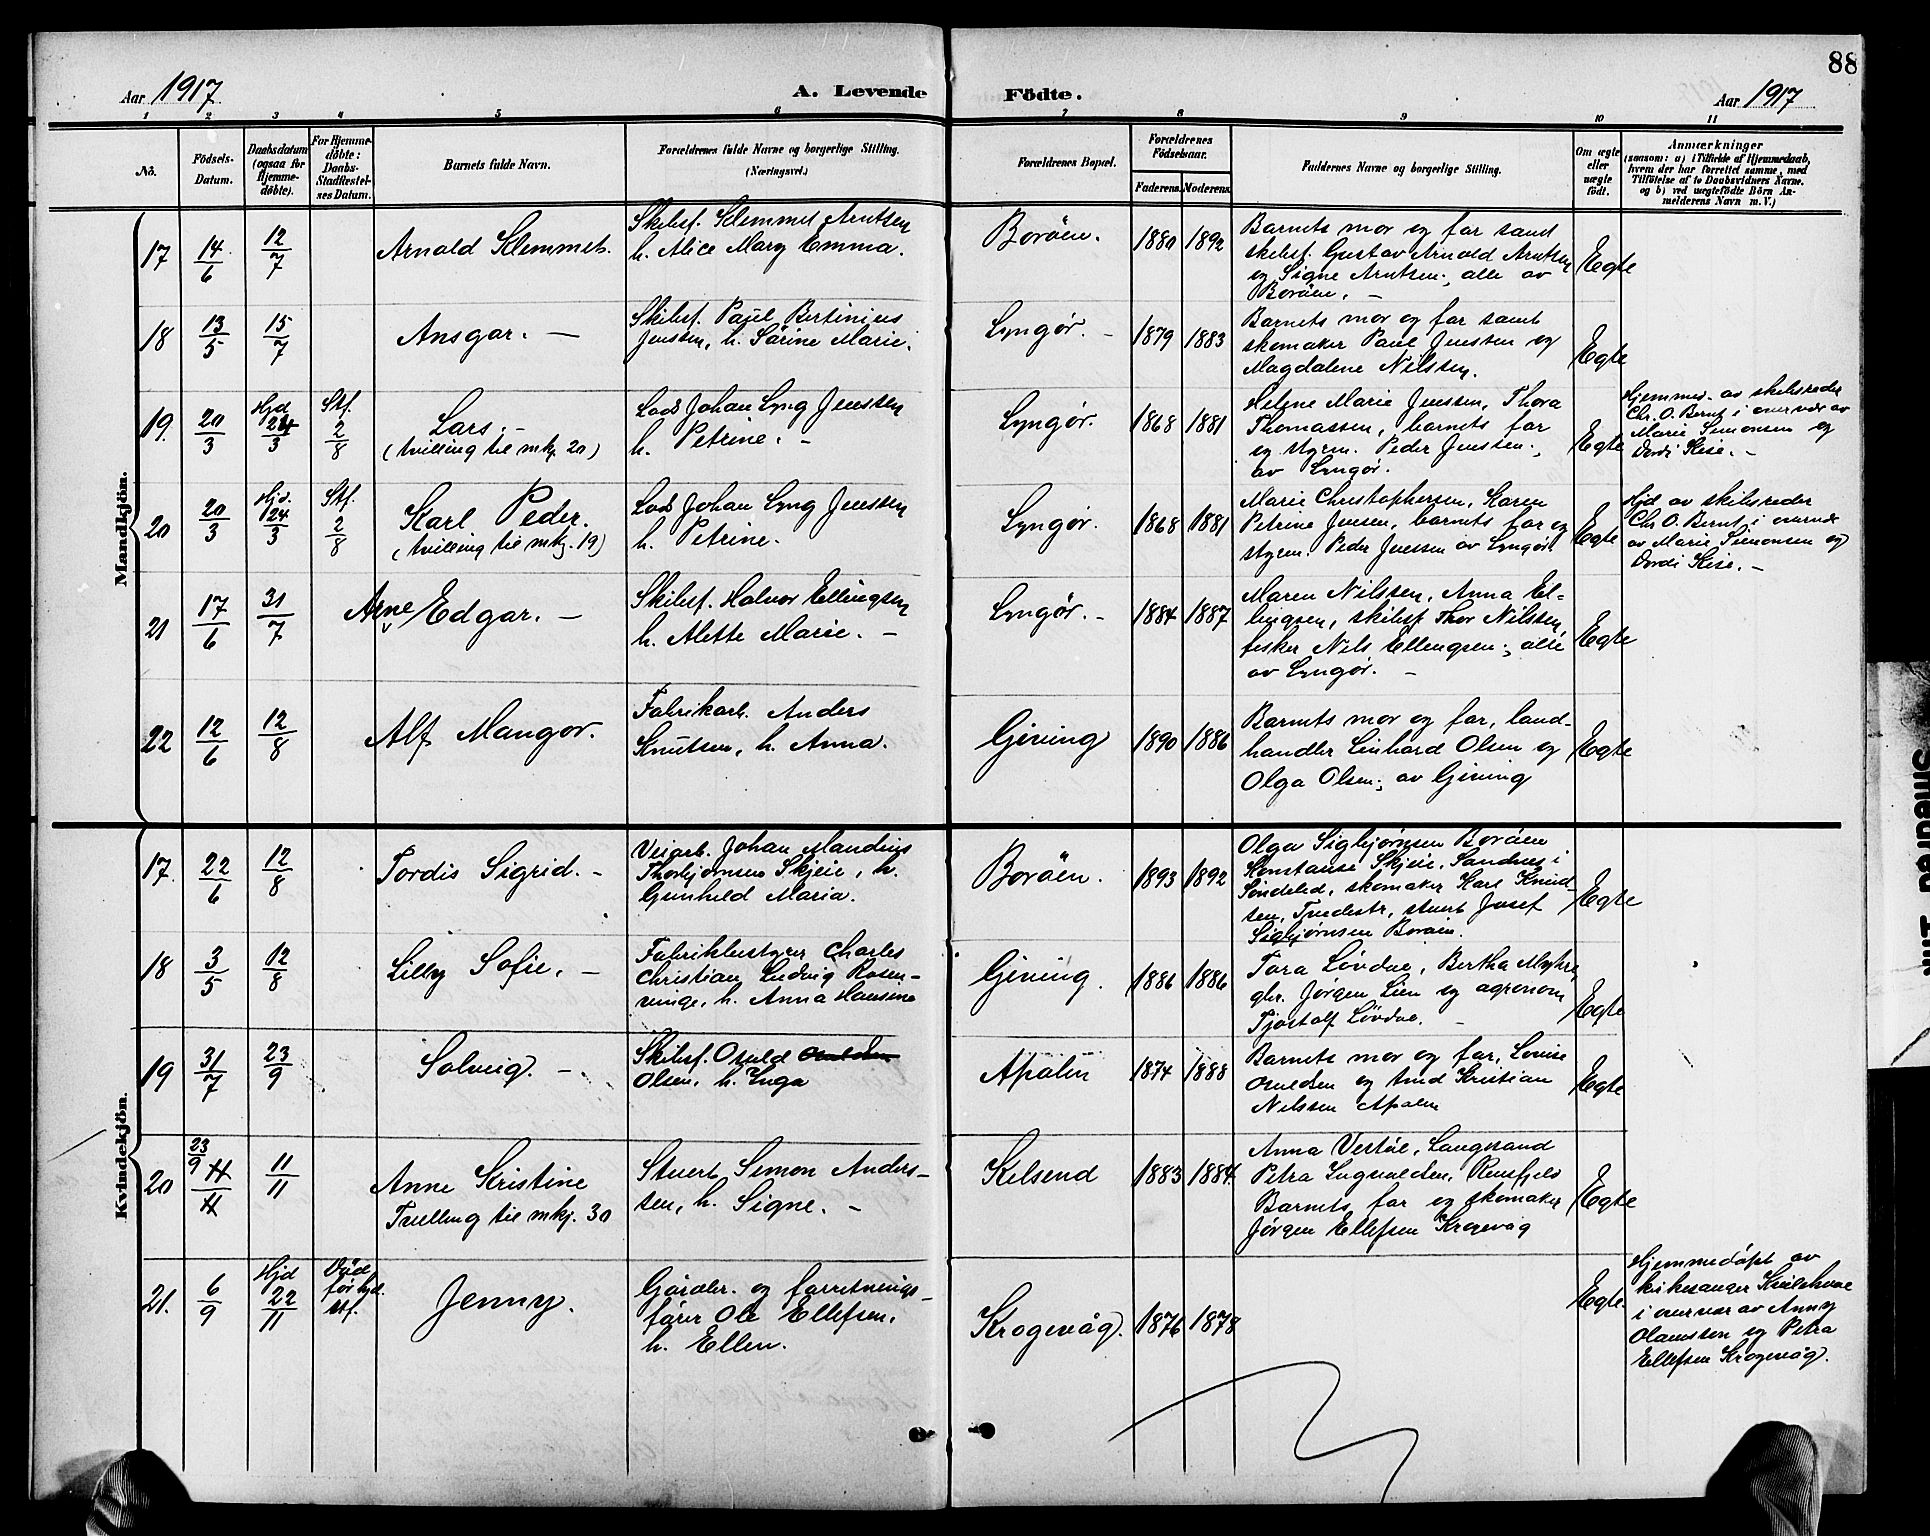 88
Aar 1917
A. Levende Födte.
Aar 1917
1 2 3 4 5 6 7 8 9 10 11
No.
Födsels-
Datum.
Daabsdatum
(ogsaa for
Hjemme-
döbte).
For Hjemme-
döbte:
Daabs-
Stadfæstel-
ses Datum.
Barnets fulde Navn.
Forældrenes fulde Navne og borgerlige Stilling.
(Næringsvei.)
Forældrenes Bopæl.
Forældrenes
Födselsaar.
Faderens.
Moderens.
Faddernes Navne og borgerlige Stilling.
Om ægte
eller
uægte
födt.
Anmærkninger
(saasom: a) i Tilfælde af Hjemmedaab,
hvem der har forrettet samme, med
Tilföielse af to Daabsvidners Navne,
og b) ved uægtefödte Börn An-
melderens Navn m. V.)
Mandkjön.
17
14/6
12/7
Arnold Klemmet.
Skibsf. Klemmet Arntsen
h. Alice Mary Emma.
Boröen.
1880 1892
Barnets mor og far samt
skibsf. Gustav Arnold Arntsen
og Signe Arntsen; alle av
Boröen. —
Egte
18
13/5
15/7
Ansgar. —
Skibsf. Paul Bertinius
Jenssen, h. Sörine Marie.
Lyngør. —
1879 1883
Barnets mor og far samt
skomaker Paul Jenssen og
Magdalene Nilssen.
Egte
19.
20/3
Hjd
24/3
Stf.
2/8
Lars. —
(tvilling til mkj. 20)
Lods Johan Lyng Jenssen
h. Petrine. —
Lyngør.
1868 1881
Helene Marie Jenssen, Thora
Thomassen, barnets far
og styrm. Peder Jenssen;
av Lyngör.
Egte
Hjemmed. av skibsreder
Chr. O. Bernt i overvær av
Marie Simonsen og
Dordi Kise. —
20
20/3
Hjd.
24/3
Stf.
2/8
Karl Peder.
(tvilling til mkj. 19)
Lods Johan Lyng Jenssen
h. Petrine.
Lyngør.
1868 1881
Marie Christophersen, Karen
Petrine Jensen, barnets far og
styrm. Peder Jenssen av Lyngör
Egte
Hjd av skibsreder
Chr. O. Bernt i overvær
av Marie Simonsen og
Dordi Kise. —
21
17/6
31/7
Arne Edgar. —
Skibsf. Halvor Ellingsen
h. Alette Marie. —
Lyngør. —
1884 1887
Maren Nilssen, Anna El-
lingsen, skibsf. Thor Nilssen,
fisker Nils Ellengsen; alle
av Lyngør. —
Egte
22
12/6
12/8
Alf Mangor.
Fabrikarb. Anders
Knutsen, h. Anna.
Gjeving
1890 1886
Barnets mor og far, land-
handler Linhard Olsen og
Olga Olsen; av Gjeving
Egte
Kvindekjön.
17.
22/6
12/8
Tordis Sigrid. —
Veiarb. Johan Mandius
Thorbjørnsen Skjeie, h.
Gunhild Maria.
Boröen.
1893 1892
Olga Sigbjørnsen Boröen
Konstanse Skjeie, Sandnes i
Söndeled, skomaker Karl Knud-
sen, Tvedestr, stuert Josef
Sigbjørnsen Boröen.
Egte
18
3/5
12/8
Lilly Sofie. —
Fabrikbestyrer Charles
Christian Ludvig Rosen-
vinge, h. Anna Hansine
Gjeving.
1886 1886
Tora Lövdue, Bertha Myhre,
gbr. Jörgen Lien og agronom
Tjostolf Lövdue. —
Egte
19
31/7
23/9
Solveig. —
Skibsf. Osuld Osuldsen
Olsen, h. Inga
Apalen
1874 1888
Barnets mor og far, Lovise
Osuldsen og Amd Kristian
Nilssen Apalen
Egte
20
23/9
11/11
11/11
Anne Kristine
Tvilling til mkj. 30
Stuert Simon Anders-
sen, h. Signe. —
Kilsend
1883 1884
Anna Vestöl, Laugsand
Petra Ingvaldsen,
Barnets far og skomaker
Jörgen Ellefsen Krogevåg
Egte
21.
6/9
Hjd
22/11
Död
för hjd.
stf.
Jenny.
Gårdbr. og forretnings-
förer Ole Ellefsen,
h. Ellen.
Krogevåg.
1876 1878
Egte
Hjemmedöpt av
kirkesanger
i overvær av Anny
Olaussen og Petra
Ellefsen Krogevåg.